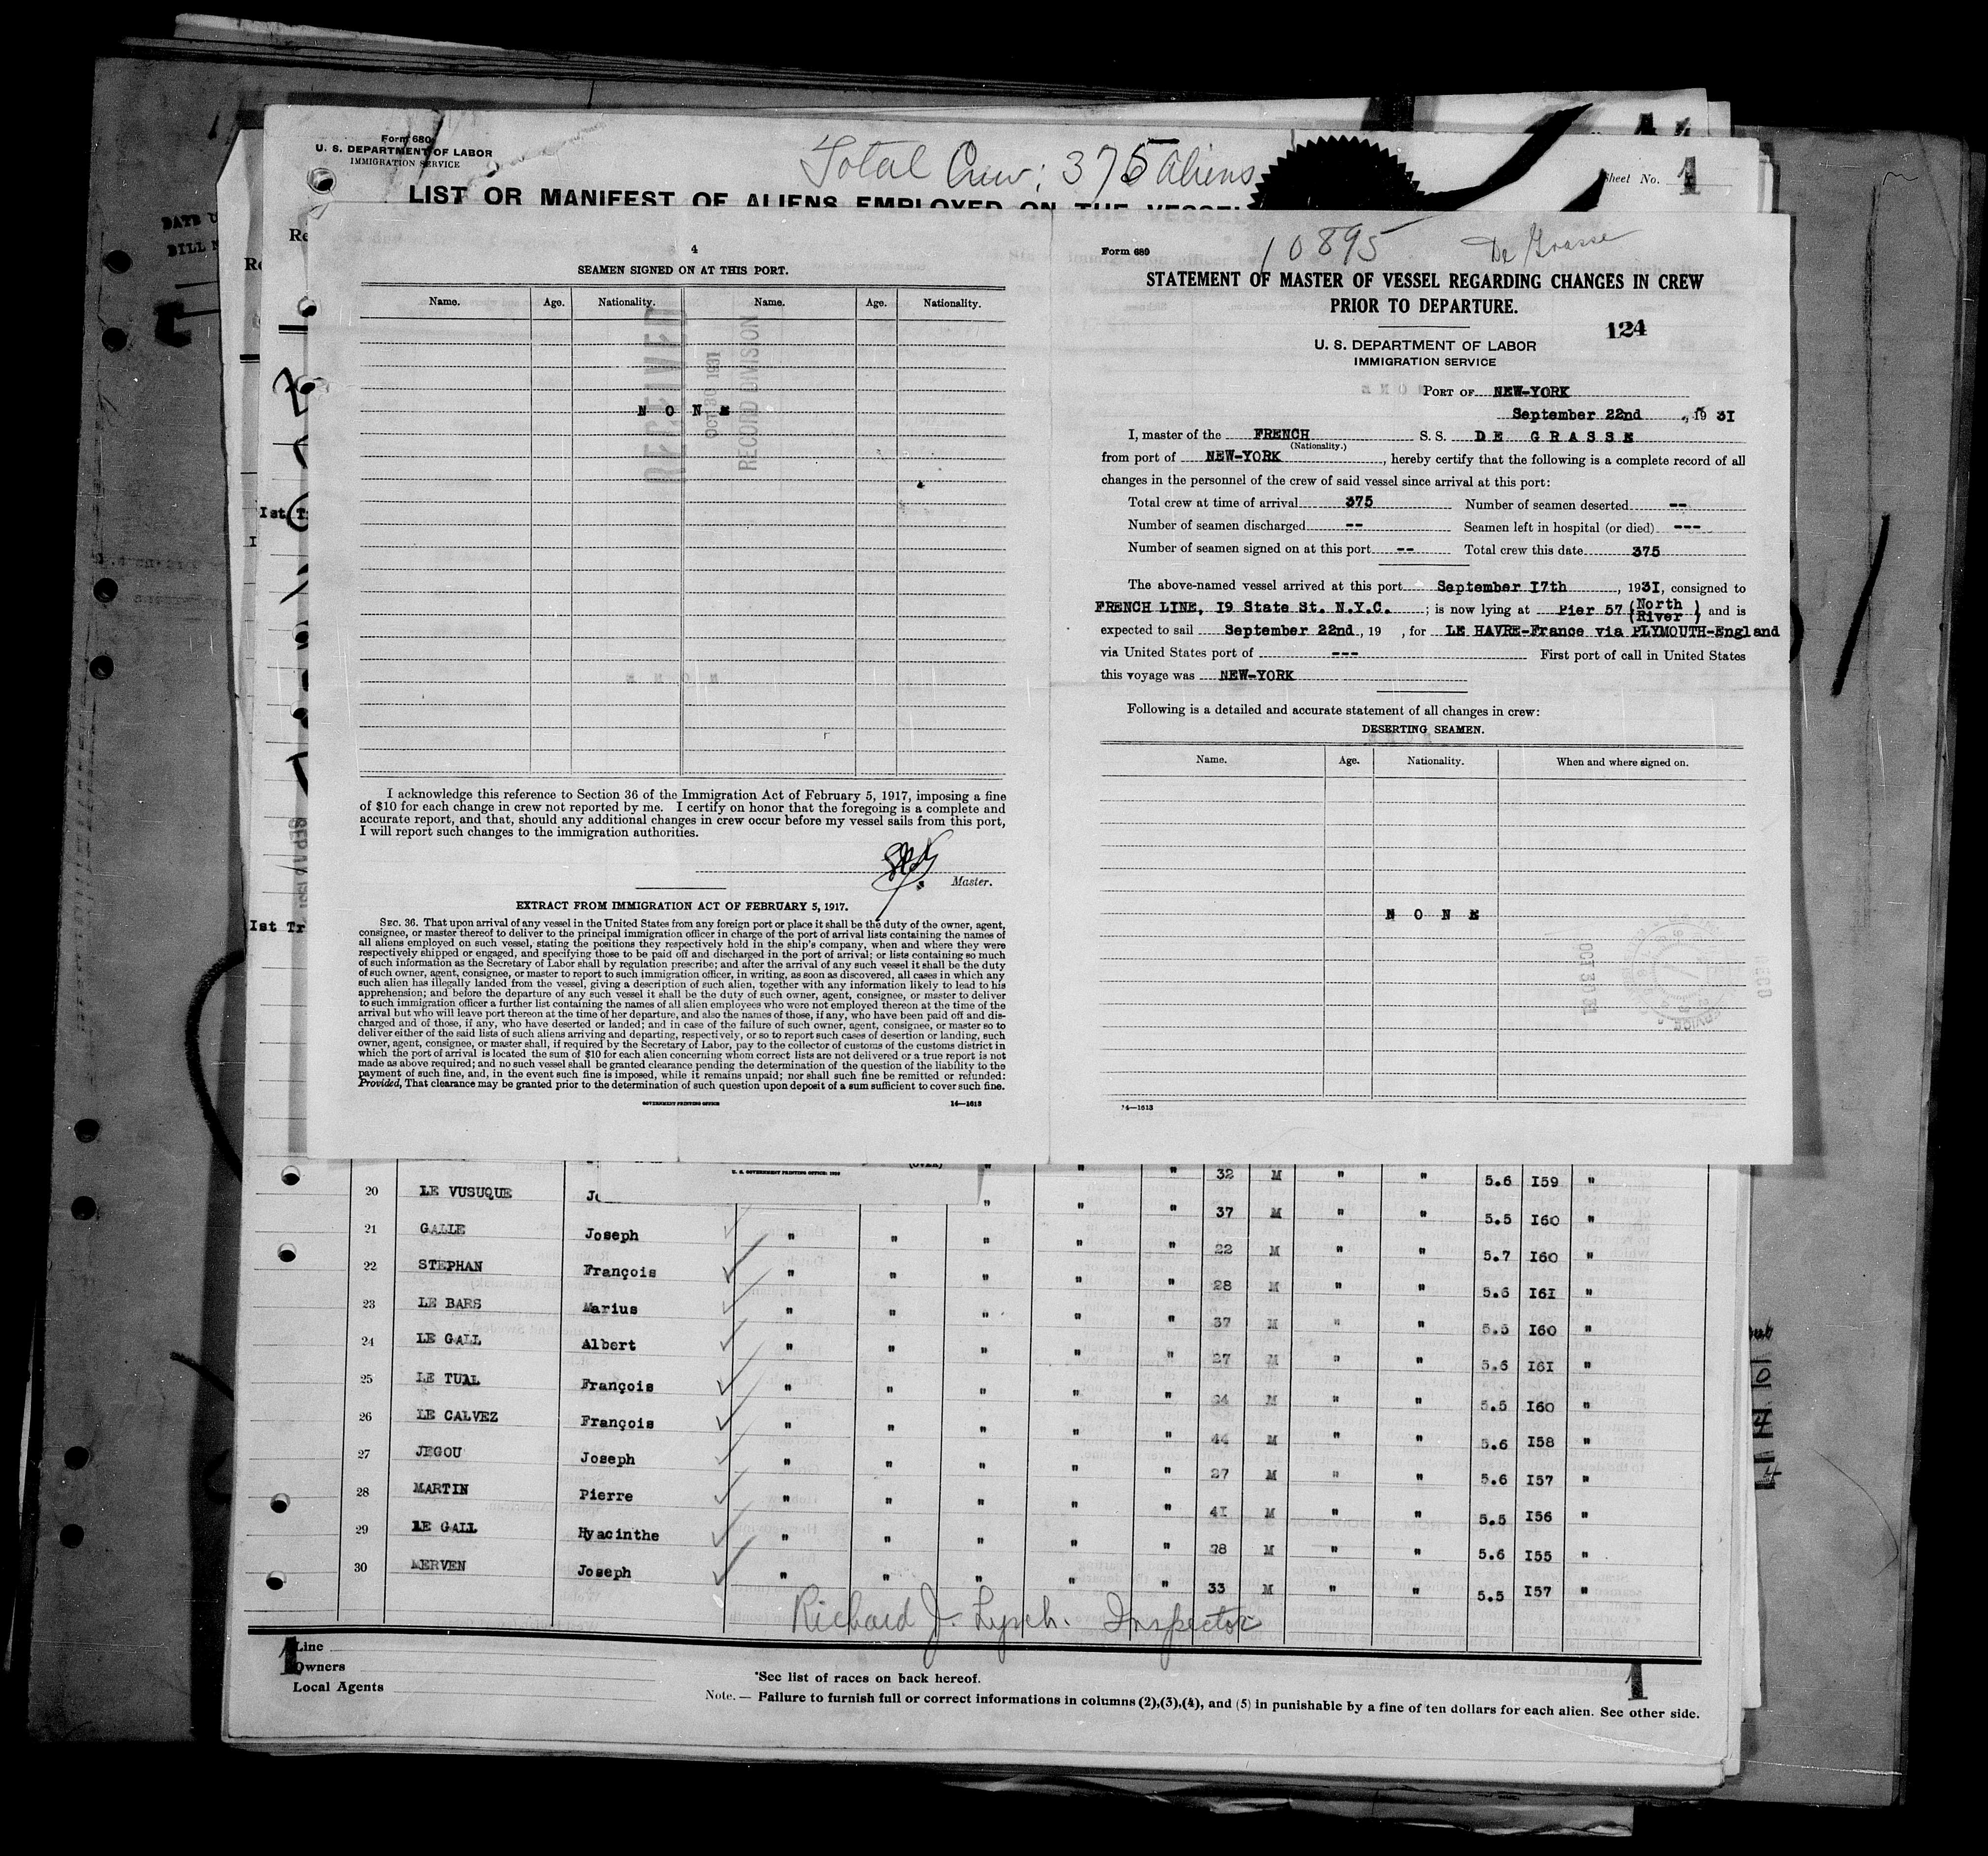 Form 680
U. S. DEPARTMENT OF LABOR
IMMIGRATION SERVICE
Total Crew: 375 Aliens
Sheet No. 1
LIST OR MANIFEST OF ALIENS EMPLOYED ON THE VESSEL
DATE
BILL
4
SEAMEN SIGNED ON AT THIS PORT.
Name. Age. Nationality. Name. Age. Nationality.
NONE
RECEIVED
OCT 30 1931
RECORD DIVISION
I acknowledge this reference to Section 36 of the Immigration Act of February 5, 1917, imposing a fine
of $10 for each change in crew not reported by me. I certify on honor that the foregoing is a complete and
accurate report, and that, should any additional changes in crew occur before my vessel sails from this port,
I will report such changes to the immigration authorities.
Master.
EXTRACT FROM IMMIGRATION ACT OF FEBRUARY 5, 1917.
SEC. 36. That upon arrival of any vessel in the United States from any foreign port or place it shall be the duty of the owner, agent,
consignee, or master thereof to deliver to the principal immigration officer in charge of the port of arrival lists containing the names of
all aliens employed on such vessel, stating the positions they respectively hold in the ship's company, when and where they were
respectively shipped or engaged, and specifying those to be paid off and discharged in the port of arrival; or lists containing so much
of such information as the Secretary of Labor shall by regulation prescribe; and after the arrival of any such vessel it shall be the duty
of such owner, agent, consignee, or master to report to such immigration officer, in writing, as soon as discovered, all cases in which any
such alien has illegally landed from the vessel, giving a description of such alien, together with any information likely to lead to his
apprehension; and before the departure of any such vessel it shall be the duty of such owner, agent, consignee, or master to deliver
to such immigration officer a further list containing the names of all alien employees who were not employed thereon at the time of the
arrival but who will leave port thereon at the time of her departure, and also the names of those, if any, who have been paid off and dis-
charged and of those, if any, who have deserted or landed; and in case of the failure of such owner, agent, consignee, or master so to
deliver either of the said lists of such aliens arriving and departing, respectively, or so to report such cases of desertion or landing, such
owner, agent, consignee, or master shall, if required by the Secretary of Labor, pay to the collector of customs of the customs district in
which the port of arrival is located the sum of $10 for each alien concerning whom correct lists are not delivered or a true report is not
made as above required; and no such vessel shall be granted clearance pending the determination of the question of the liability to the
payment of such fine, and, in the event such fine is imposed, while it remains unpaid; nor shall such fine be remitted or refunded:
Provided, That clearance may be granted prior to the determination of such question upon deposit of a sum sufficient to cover such fine.
GOVERNMENT PRINTING OFFICE 14—1613
Form 680
10895 De Grasse
STATEMENT OF MASTER OF VESSEL REGARDING CHANGES IN CREW
PRIOR TO DEPARTURE.
124
U. S. DEPARTMENT OF LABOR
IMMIGRATION SERVICE
PORT OF NEW-YORK
September 22nd, 1931
I, master of the FRENCH S.S. DE GRASSE
(Nationality.)
from port of NEW-YORK, hereby certify that the following is a complete record of all
changes in the personnel of the crew of said vessel since arrival at this port:
Total crew at time of arrival 375 Number of seamen deserted --
Number of seamen discharged -- Seamen left in hospital (or died) ---
Number of seamen signed on at this port -- Total crew this date 375
The above-named vessel arrived at this port September 17th, 1931, consigned to
FRENCH LINE, 19 State St. N.Y.C.; is now lying at Pier 57 (North River) and is
expected to sail September 22nd, 19 , for LE HAVRE-France via PLYMOUTH-England
via United States port of --- First port of call in United States
this voyage was NEW-YORK
Following is a detailed and accurate statement of all changes in crew:
DESERTING SEAMEN.
Name. Age. Nationality. When and where signed on.
NONE
OCT 30 31
RECD
14—1613
Ist Tr
(OVER)
U. S. GOVERNMENT PRINTING OFFICE
" " " 32 M " " 5.6 I59 "
20 LE VUSUQUE " " " 37 M " " 5.5 I60 "
21 GALLE Joseph " " " " " 22 M " " 5.7 I60 "
22 STEPHAN François " " " " " 28 M " " 5.6 I61 "
23 LE BARS Marius " " " " " 37 M " " 5.5 I60 "
24 LE GALL Albert " " " " " 27 M " " 5.6 I61 "
25 LE TUAL François " " " " " 24 M " " 5.5 I60 "
26 LE CALVEZ François " " " " " 44 M " " 5.6 I58 "
27 JEGOU Joseph " " " " " 27 M " " 5.6 I57 "
28 MARTIN Pierre " " " " " 41 M " " 5.5 I56 "
29 LE GALL Hyacinthe " " " " " 28 M " " 5.6 I55 "
30 MERVEN Joseph " " " " " 33 M " " 5.5 I57 "
Richard J. Lynch. Inspector
1
Line
Owners
Local Agents
*See list of races on back hereof.
Note.— Failure to furnish full or correct informations in columns (2),(3),(4), and (5) in punishable by a fine of ten dollars for each alien. See other side.
1